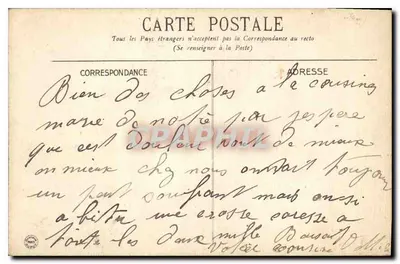 CARTE POSTALE
Tous les Pays étrangers n'acceptent pas la Correspondance au recto
(Se renseigner à la Poste)
CORRESPONDANCE
ADRESSE
Bien des choses a la cousine
marie de notre par jespere
que ces douleur vont de mieux
en mieux chez nous on vait toujour
un peut souffrant mais ausi
abitu une grosse caresse a
toute les deux mille Baiser
Votre cousine